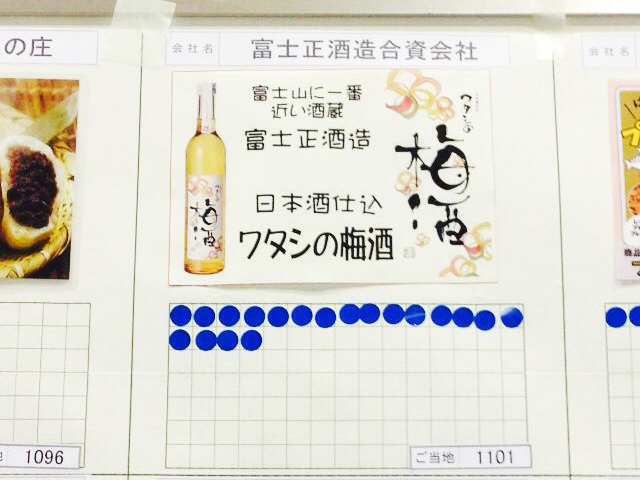 の庄
会社名 富士正酒造合資会社
富士山に一番
近い酒蔵
富士正酒造
日本酒仕込
ワタシの梅酒
ワタシの
梅酒
梅酒
1096
ご当地 1101
会社名